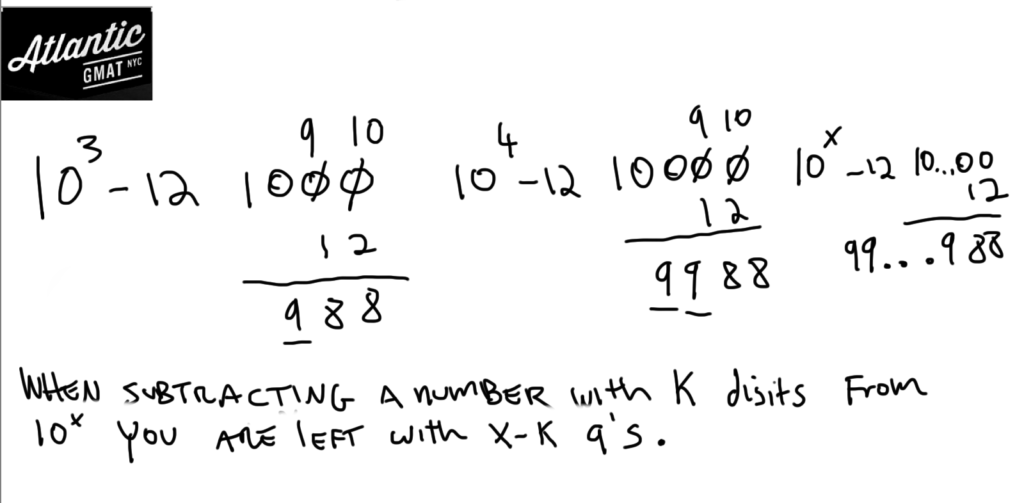 Atlantic
GMAT NYC
9 10 9 10
10³ - 12 1000 10⁴ - 12 10000 10ˣ - 12 10...00
12 12 12
988 9988 99...988
WHEN SUBTRACTING A NUMBER with K digits From
10ˣ YOU ARE LEFT with X-K 9's.